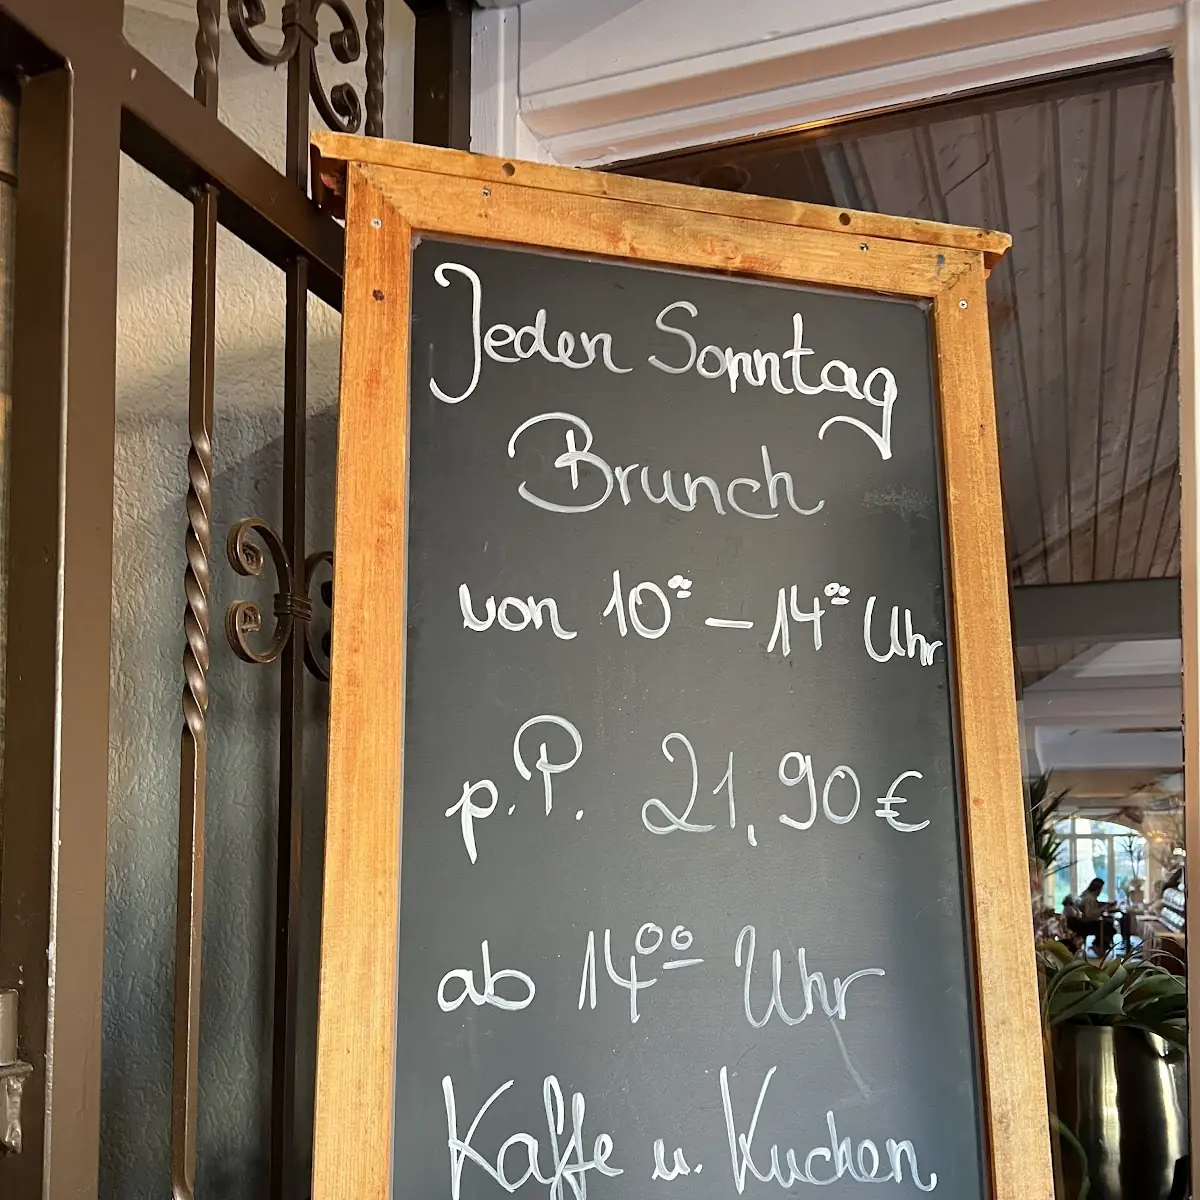 Jeden Sonntag
Brunch
von 10⁰⁰ – 14⁰⁰ Uhr
p. P. 21,90 €
ab 14⁰⁰ Uhr
Kaffe u. Kuchen